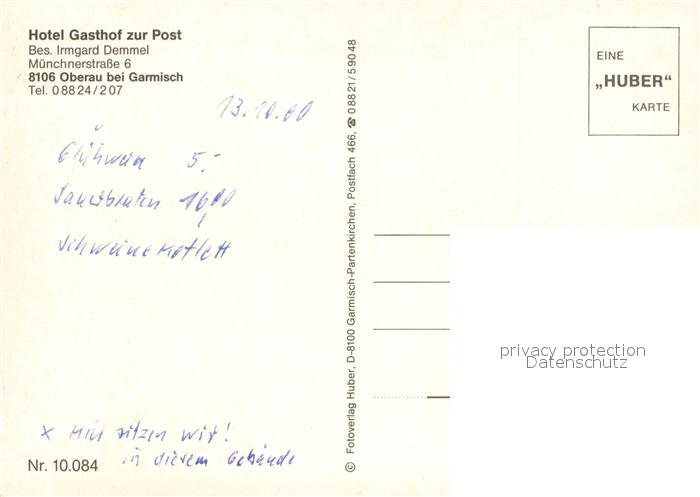 Hotel Gasthof zur Post
Bes. Irmgard Demmel
Münchnerstraße 6
8106 Oberau bei Garmisch
Tel. 0 88 24 / 2 07
13.10.80
Glühwein 5,-
Sauerbraten 16,80
Schweinekotlett
x Hier sitzen wir!
in diesem Gebäude
Nr. 10.084
© Fotoverlag Huber, D-8100 Garmisch-Partenkirchen, Postfach 466, ☎ 0 88 21 / 5 90 48
EINE
„HUBER“
KARTE
privacy protection
Datenschutz